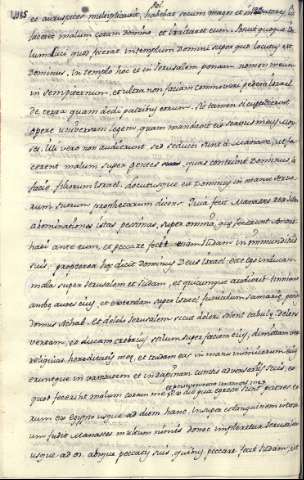 et auruspices multiplicavit, habebat secum magos et
faceret malum coram domino, et irritaret eum. Posuit quoque
luci quos fecerat in templum domini super quo locutus est
dominus. In templo hoc et in Jerusalem ponam nomen meum
in sempiternum, et ultra non faciam commoveri pedem Israel
de terra quam dedi patribus eorum. Si tamen custodierint
opere universam legem, quam mandavit eis servus meus moy
ses. illi vero non audierunt sed seducti sunt a Manasse, ut fa
cerent malum super gentes quas contrivit Dominus a
facie filiorum Israel. locutusque est Dominus in manu servo
rum suorum prophetarum dicens. Quia fecit Manasses rex Juda
abominationes istas pessimas, super omnia quae fecerunt Amorr
haei ante eum, et peccare fecit etiam Judam in immunditiis
suis. propterea haec dicit dominus Deus israel. Ecce ego inducam
mala super Jerusalem et Judam, ut quicumque audierit tinniant
ambae aures eius, et extendam super Jerusalem funiculum samariae, pondus
domus Achab. et delebo Jerusalem sicut deleri solent tabulae, delens
vertam, et ducam crebrius stilum super faciem eius, dimittam vero
reliquias hereditatis meae, et tradam eas in manu inimicorum eius
eruntque in vastitatem et in rapinam cunctis adversariis suis. eo
quod fecerint malum coram me et
rum ex Egypto usque ad diem hanc. Insuper et sanguinem innoxi
um fudit Manasses multum nimis donec impleret Jerusalem
usque ad os absque peccatis suis, quibus peccare fecit Judam, ut